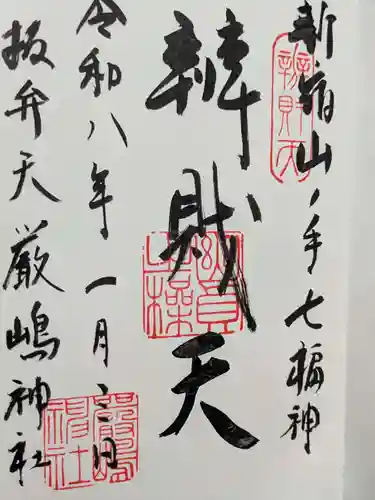 新宿山ノ手七福神
辨財天
辨財天
令和八年一月二日
抜弁天厳嶋神社
厳嶋神社